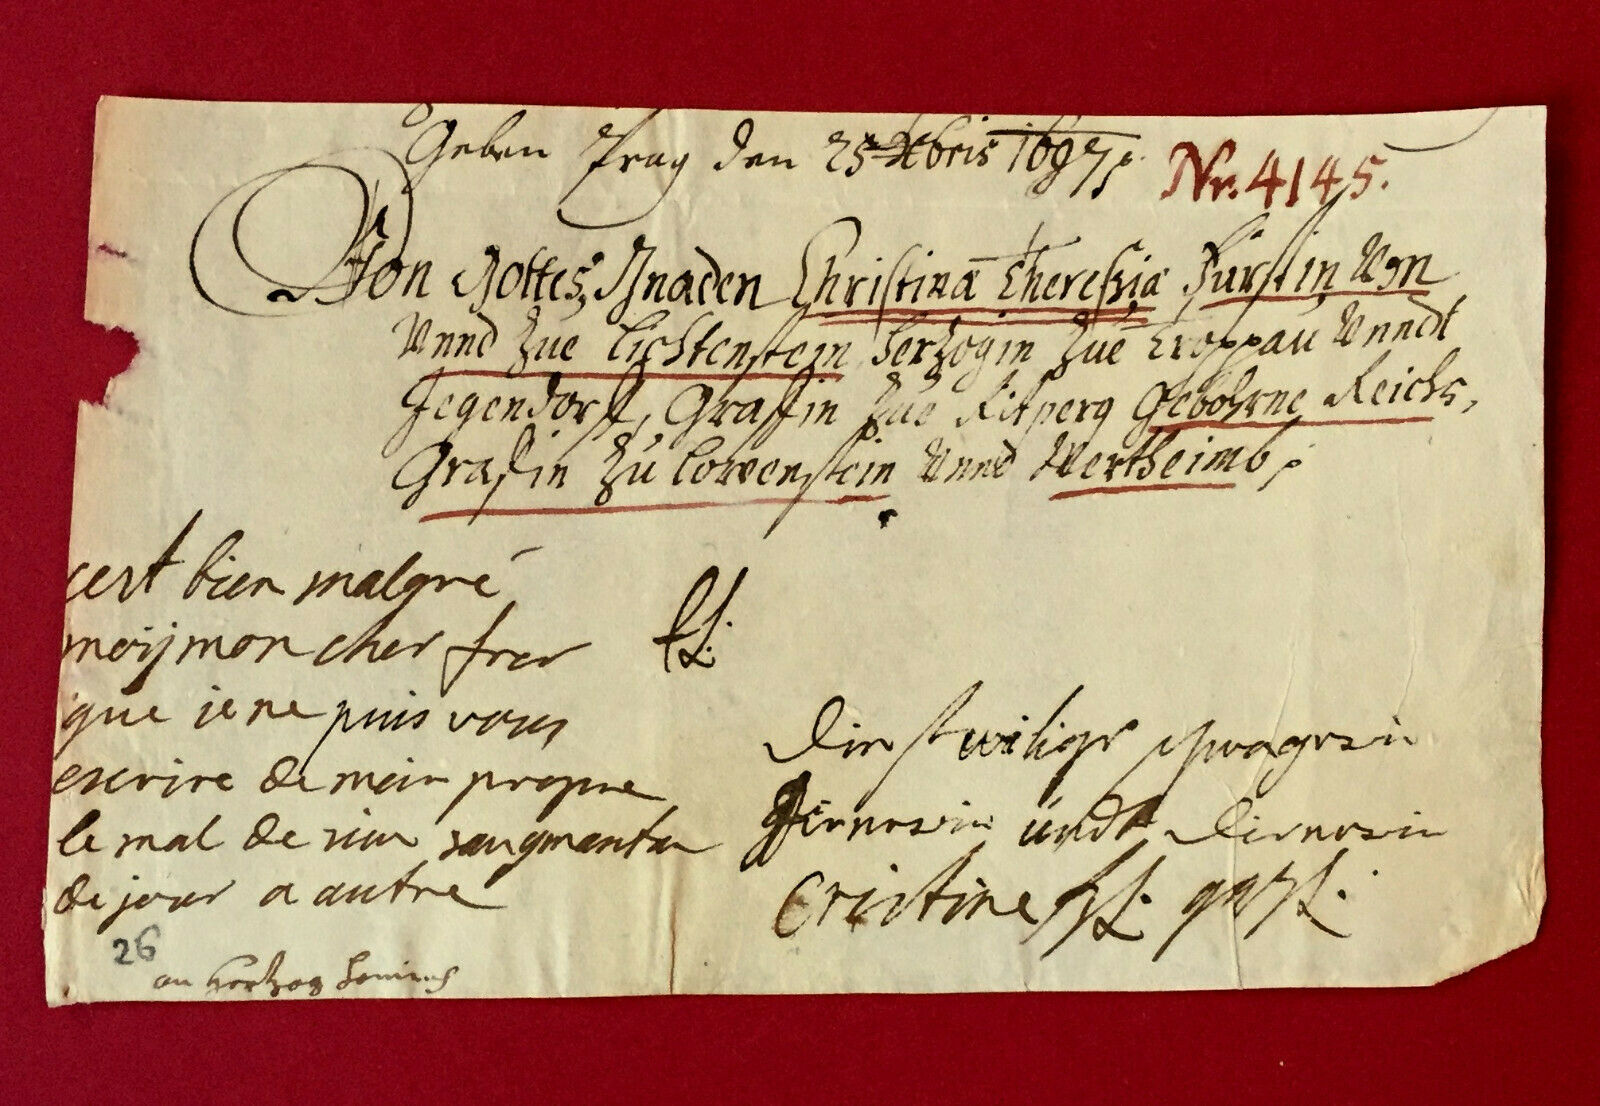 Geben Prag den 25 Xbris 1687
Nr. 4145.
Von Gottes Gnaden Christina Theresia Fürstin Von
Vnnd Zue Lichtenstein Herzogin Zue Troppau Vnndt
Jegendorff, Graffin Zue Ritperg Gebohrne Reichs,
Graffin Zu Lowenstein Vnnd Wertheimb
cest bien malgré
moij mon cher frer
que ie ne puis vous
escrire de mein propre
le mal de saugmanta
de jour a autre
Dinstwilige schwagerin
undt Dienerin
Cristine
26
an Hertzog